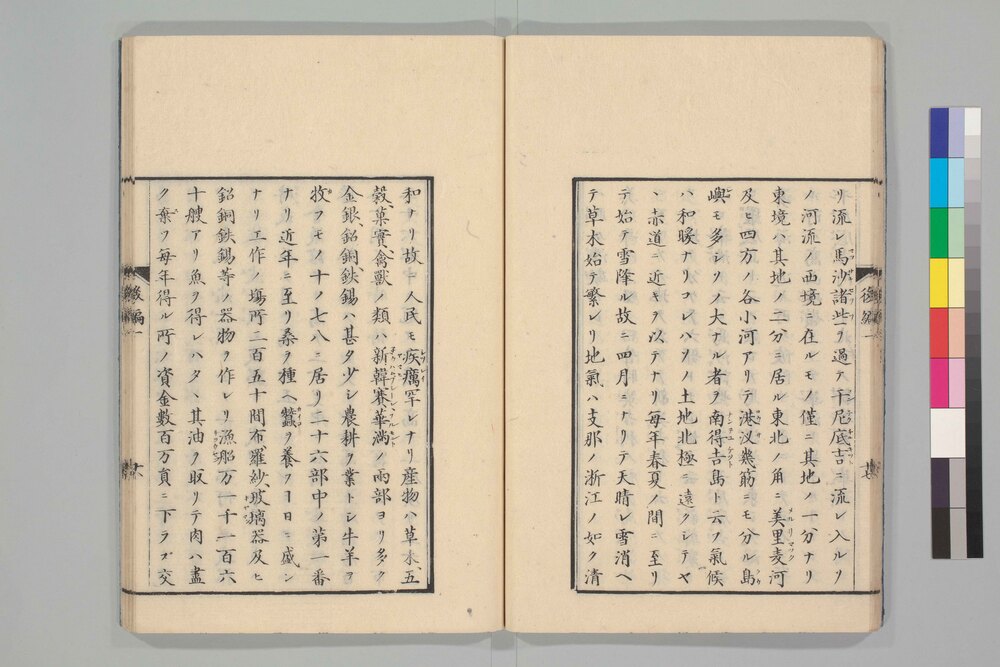 リ流レ馬沙諸些ヲ過テ干尼底吉ニ流レ入ルソ
ノ河流ノ西境ニ在ルモノ僅ニ其地ノ一分ナリ
東境ハ其地ノ二分ニ居ル東北ノ角ニ美里麦河
及ヒ四方ノ各小河アリテ港汊幾筋ニモ分ル島
嶼モ多シソノ大ナル者ヲ南得吉島ト云フ氣候
ハ和暖ナリコレハソノ土地北極ニ遠クシテヤ
ヽ赤道ニ近キヲ以テナリ毎年春夏ノ間ニ至リ
テ始テ雪降ル故ニ四月ニナリテ天晴レ雪消ヘ
テ草木始テ繁レリ地氣ハ支那ノ浙江ノ如ク清
後編一
和ナリ故ニ人民モ疾癘罕レナリ産物ハ草木五
穀菓實禽獸ノ類ハ新韓賽華滿ノ兩部ヨリ多ク
金銀鉛銅鉄錫ハ甚タ少シ農耕ヲ業トシ牛羊ヲ
牧フモノ十ノ七八ニ居リ二十六部中ノ第一番
ナリ近年ニ至リ桑ヲ種ヘ蠶ヲ養フヿ日ニ盛ン
ナリ工作ノ塲所二百五十間布羅紗玻璃器及ヒ
鉛銅鉄錫等ノ器物ヲ作レリ漁船万一千一百六
十艘アリ魚ヲ得レハタヽ其油ヲ取リテ肉ハ盡
ク棄ツ毎年得ル所ノ資金數百万員ニ下ラズ交
後編一